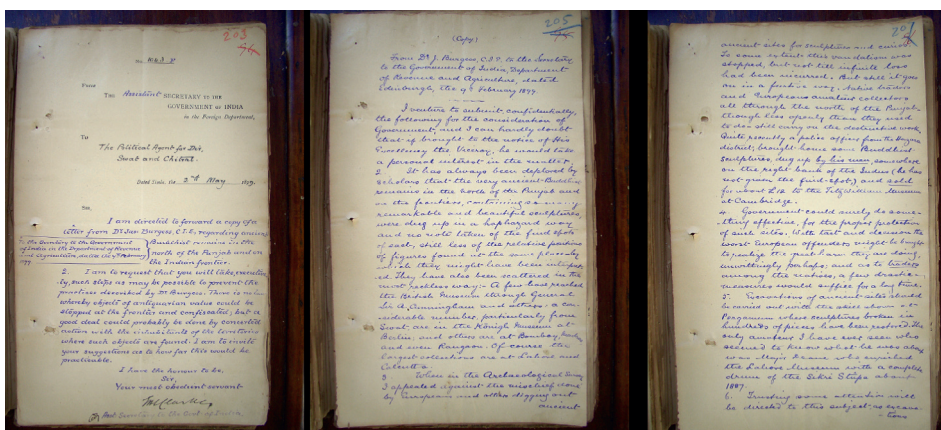 203
No. 1063 F
From
The Assistant SECRETARY TO THE
GOVERNMENT OF INDIA
in the Foreign Department,
To
The Political Agent for Dir,
Swat and Chitral.
Dated Simla the 2nd May 1899.
Sir,
I am directed to forward a copy of a
letter from Dr Jas Burgess, C.I.E., regarding ancient
to the Secretary to the Government
of India in the Department of Revenue
and Agriculture, dated the 9th February
1899
Buddhist remains in the
north of the Punjab and on
the Indian frontier.
2. I am to request that you will take, executive-
ly, such steps as may be possible to prevent the
practices described by Dr Burgess. There is no law
whereby objects of antiquarian value could be
stopped at the frontier and confiscated; but a
good deal could probably be done by concerted
action with the inhabitants of the territories
where such objects are found. I am to invite
your suggestions as to how far this would be
practicable.
I have the honour to be,
Sir,
Your most obedient servant
Asst Secretary to the Govt of India
205
(Copy.)
From Dr J. Burgess, C.I.E. to the Secretary
to the Government of India, Department
of Revenue and Agriculture, dated
Edinburgh, the 9th February 1899.
I venture to submit confidentially
the following for the consideration of
Government, and I can hardly doubt
that if brought to the notice of His
Excellency the Viceroy, he would take
a personal interest in the matter.
2. It has always been deplored by
scholars that the very ancient Buddhist
remains in the north of the Punjab and
on the frontiers, containing so many
remarkable and beautiful sculptures,
were dug up in a haphazard way
and no note taken of the find spots
of each, still less of the relative positions
of figures found at the same place by
which they might have been interpret-
ed. They have also been scattered in the
most reckless way:- A few have reached
the British Museum through General
Sir A. Cunningham and others: a con-
siderable number, particularly from
Swat, are in the Königl Museum at
Berlin; and others are at Bombay,
and even Rangoon. Of course the
largest collections are at Lahore and
Calcutta.
3. When in the Archaeological Survey
I appealed against the mischief done
by Europeans and others digging out
ancient
207
ancient sites for sculptures and curios.
To some extent this vandalism was
stopped, but not till infinite loss
had been incurred. But still it goes
on in a furtive way. Native traders
and European amateur collectors
all through the north of the Punjab,
though less openly than they used
to do still carry on the destructive work.
Quite recently a police officer from the Hazara
district, brought home some Buddhist
sculptures, dug up by his men, somewhere
on the right bank of the Indus (he has
not given the find spot), and sold
for about £12 to the FitzWilliam Museum
at Cambridge.
4. Government could surely do some-
thing effective, for the proper protection
of such sites. With tact and decision the
worst European offenders might be brought
to realize the great harm they are doing,
unwittingly perhaps; and as to traders
among the natives, a few drastic
measures would suffice for a long time.
5. Excavations of ancient sites should
be carried out with the skill shown at
Pergamum where sculptures broken in
hundreds of pieces have been restored. The
only amateur I have ever seen who
seemed to know what he was about
was Major Deane who enriched
the Lahore Museum with a complete
drum of the Sikri Stupa about
1887.
6. Trusting some attention will
be directed to this subject, as excava-
-tions